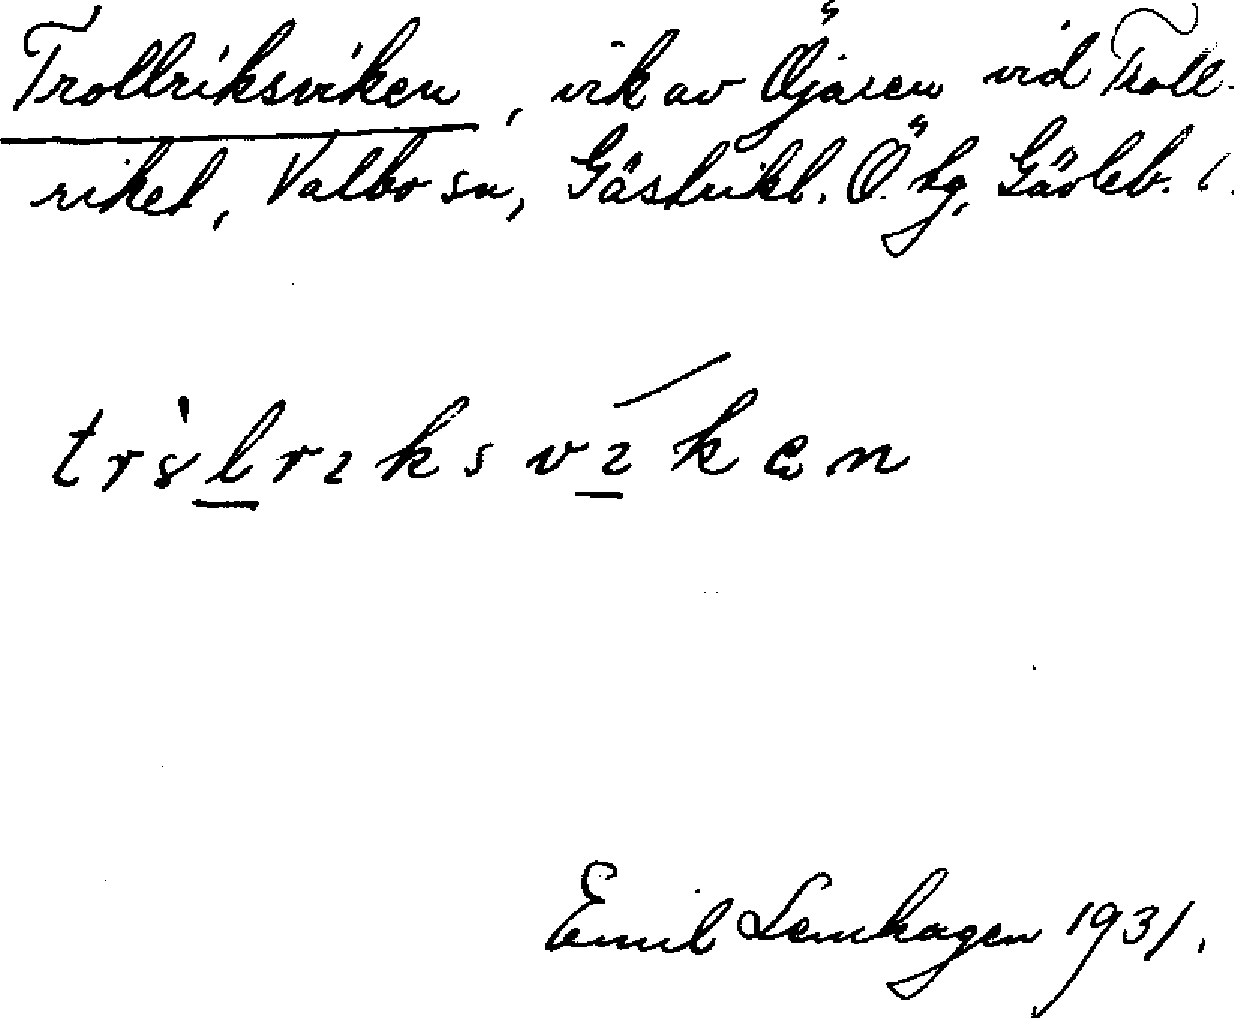 Trollriksviken, vik av Öjaren vid Troll-
riket, Valbo sn, Gästrikl. Ö. tg, Gävleb. l.
Emil Lenhagen 1931.